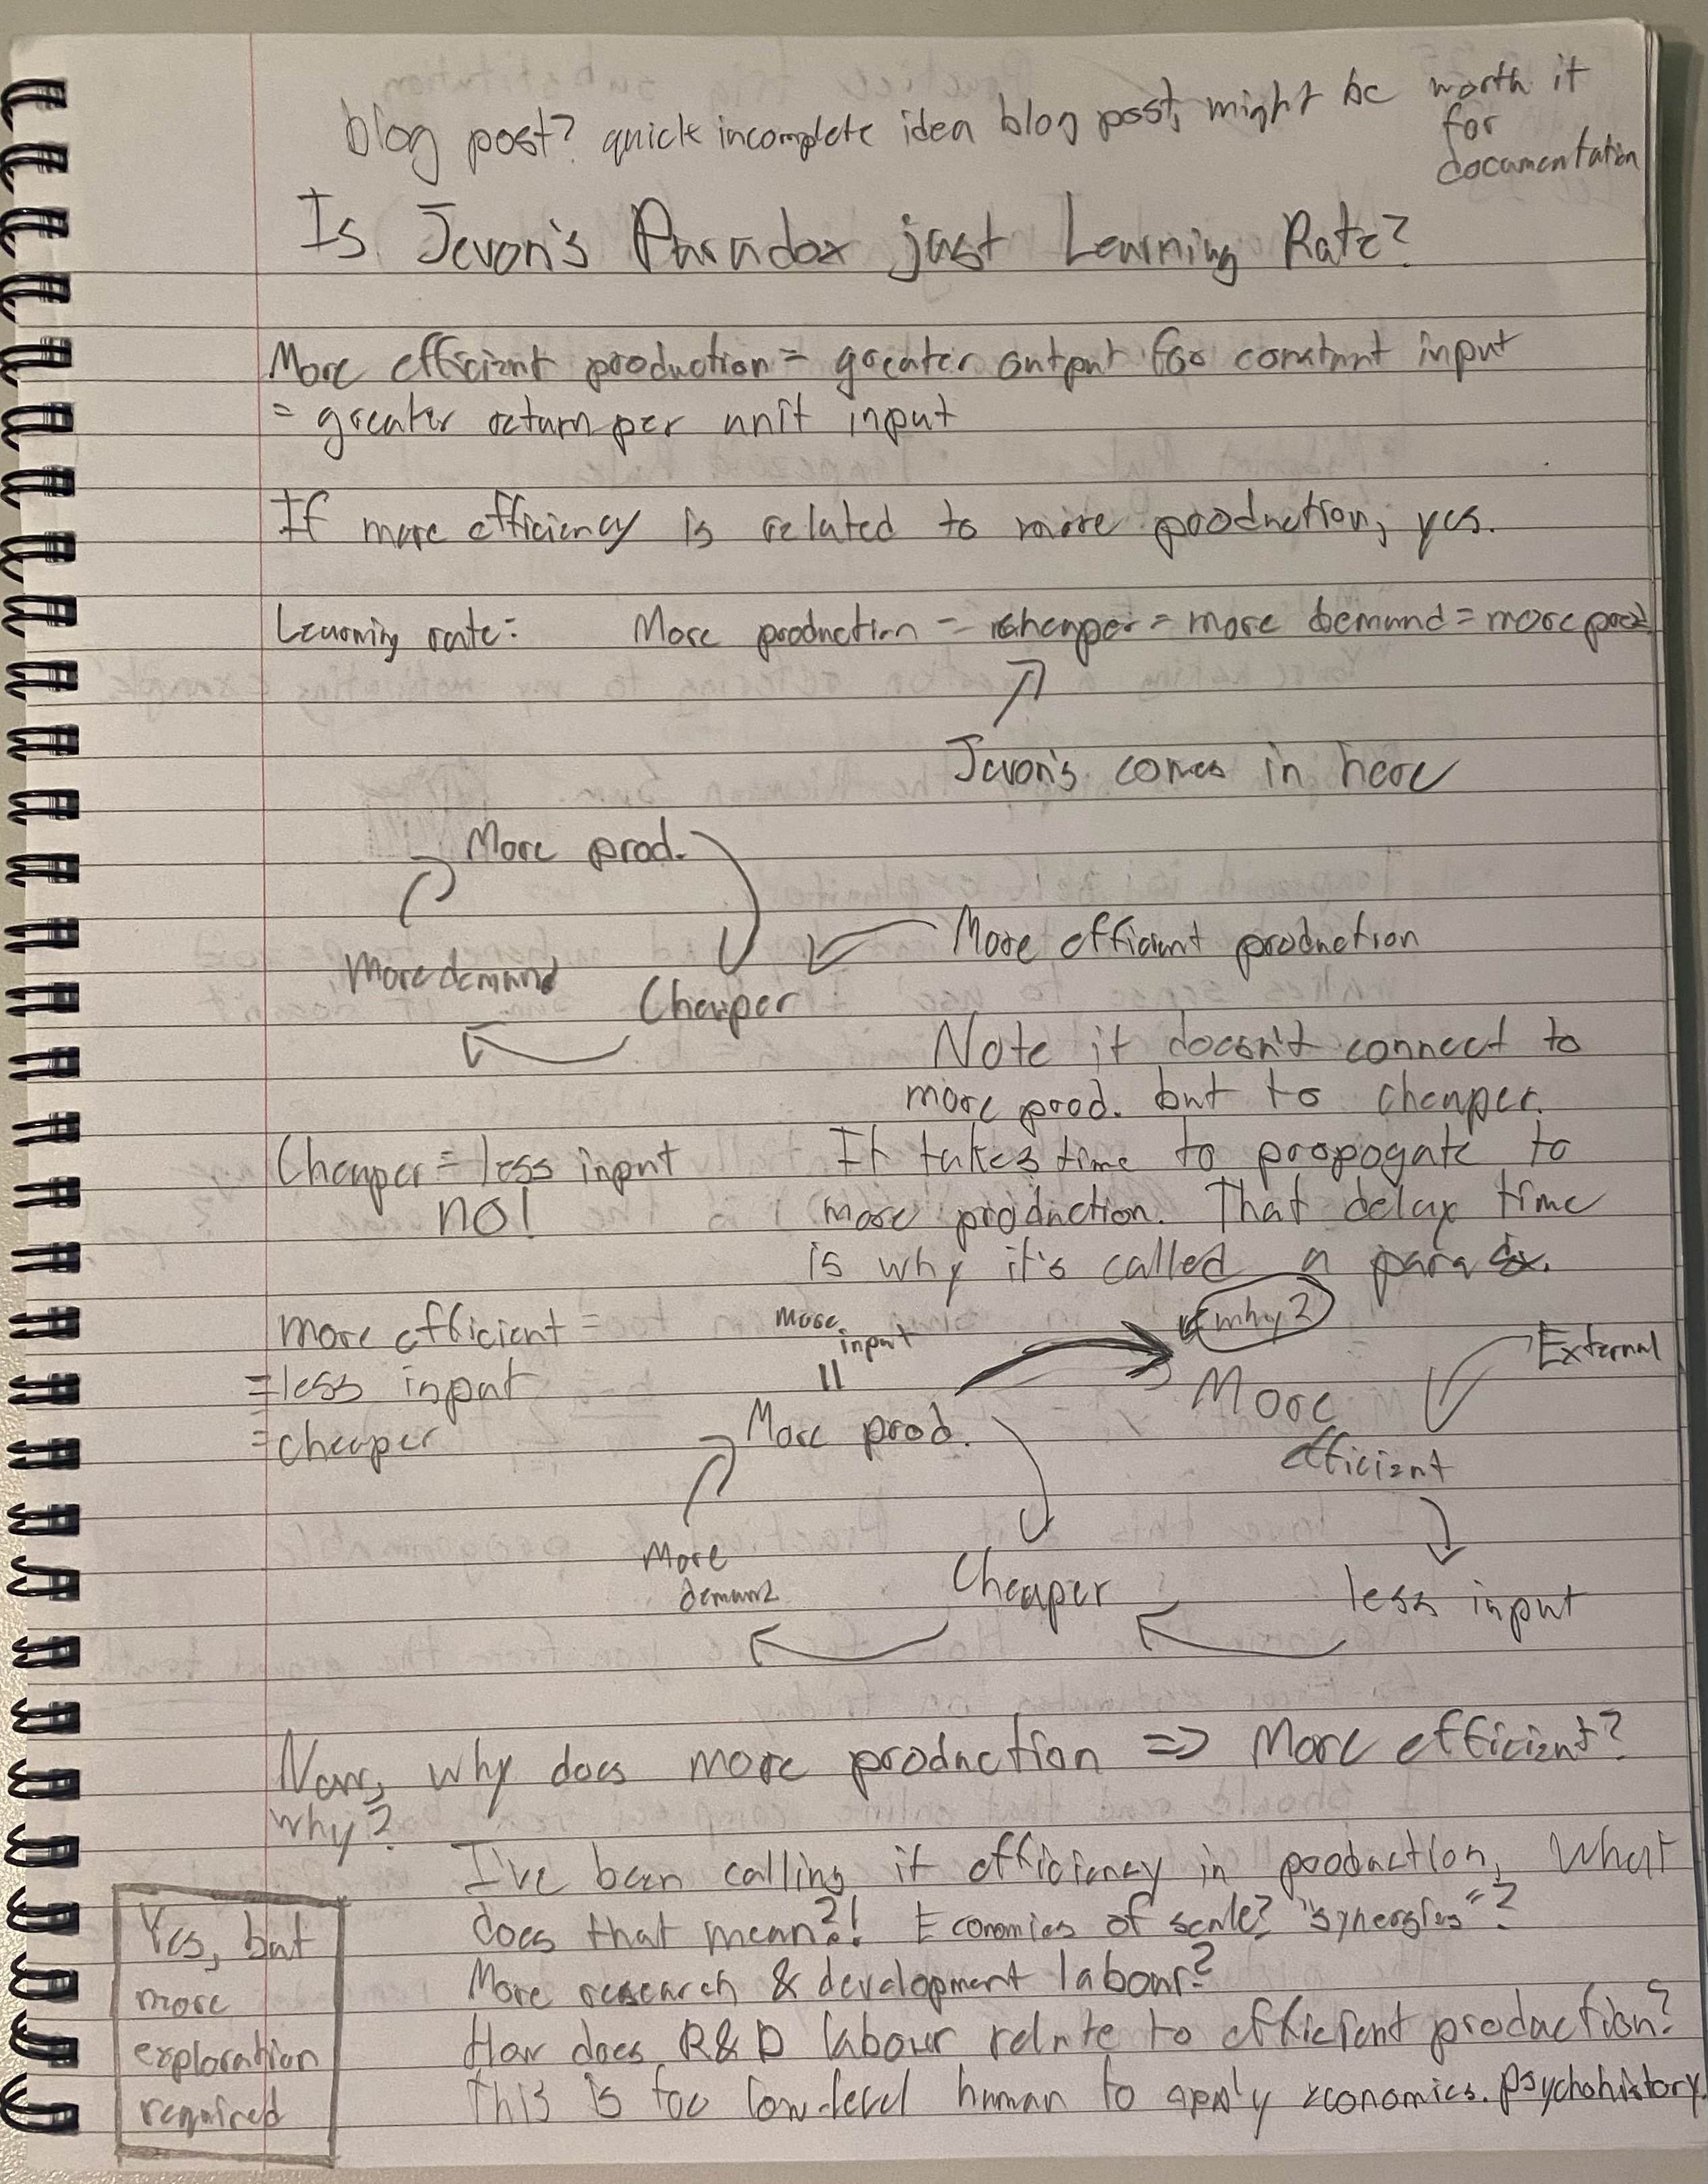 blog post? quick incomplete idea blog post, might be worth it
for
documentation
Is Jevon's Paradox just Learning Rate?
More efficient production = greater output for constant input
= greater return per unit input
If more efficiency is related to more production, yes.
Learning rate: More production = cheaper = more demand = more prod
Jevon's comes in here
More prod.
More efficient production
More demand
Cheaper
Note it doesn't connect to
more prod. but to cheaper.
Cheaper = less input
no!
It takes time to propogate to
more production. That delay time
is why it's called a paradox.
more efficient =
= less input
= cheaper
More
input
=
why?
External
More prod.
More
efficient
More
demand
Cheaper
less input
Now, why does more production => More efficient?
why?
I've been calling it efficiency in production, What
does that mean?! Economies of scale? "synergies"?
More research & development labour?
How does R&D labour relate to efficient production?
This is too low-level human to apply economics. psychohistory.
Yes, but
more
exploration
required